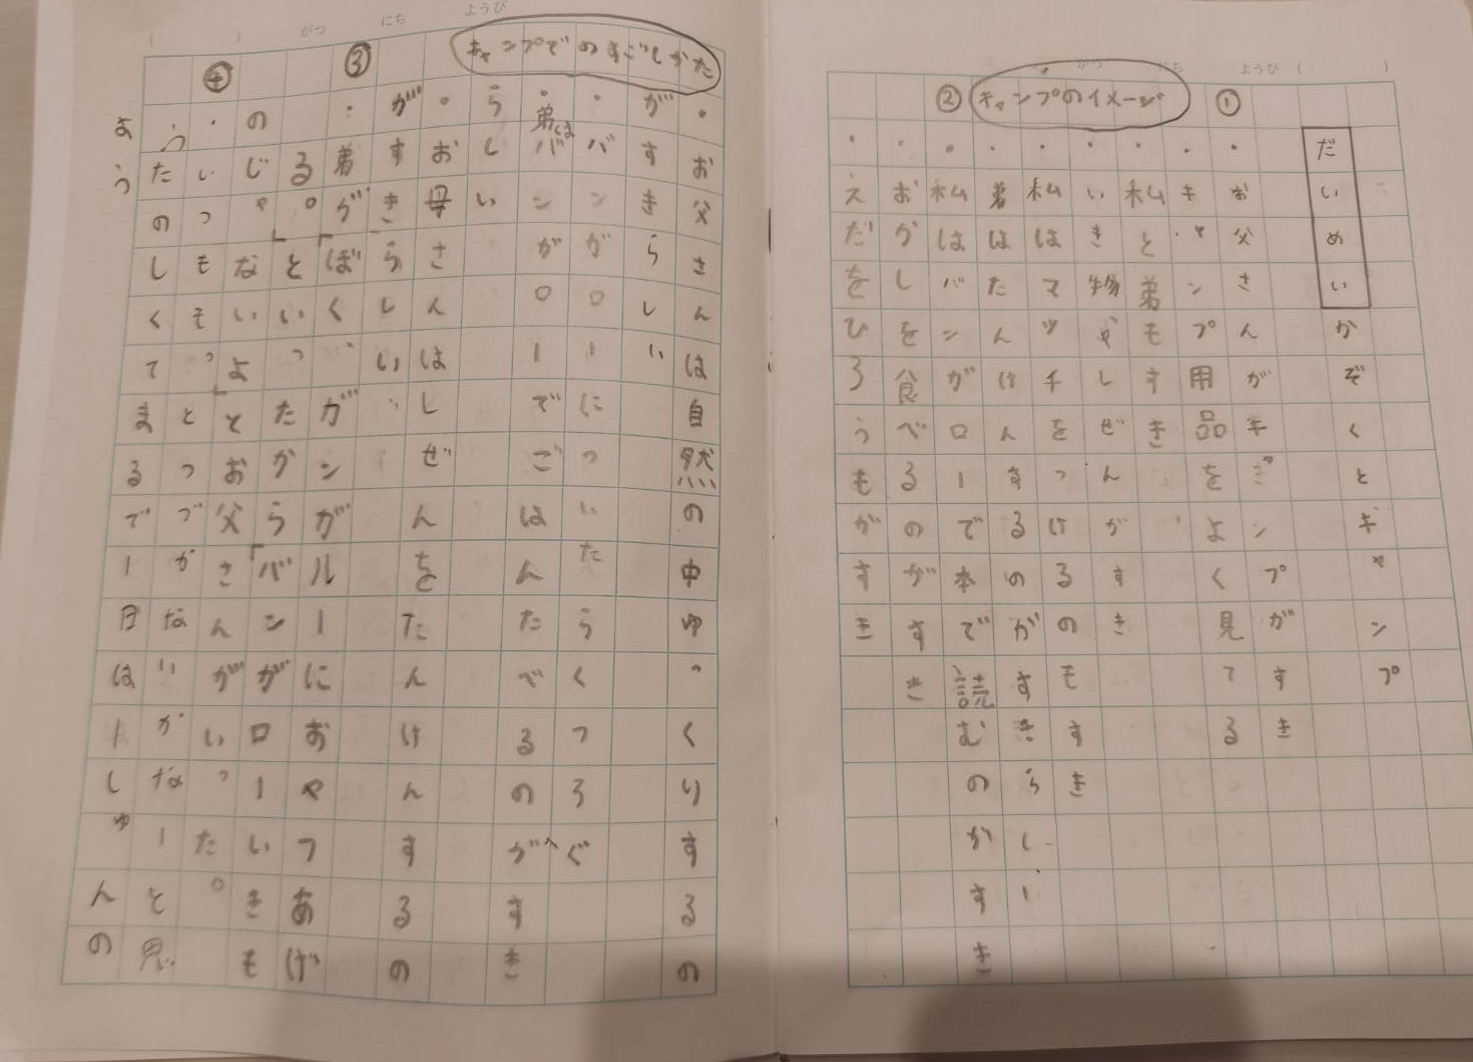 がつ にち ようび
だいめいかぞくとキャンプ
①
・お父さんがキャンプがすき
・キャンプ用品をよく見てる
・私と弟もすき
・いき物やしぜんがすき
キャンプのイメージ
・私はマッチをつけるのもすき
②
・弟はたんけんするのがすきらしい
・私はバンガローで本で読むのかすき
・おかしを食べるのがすき
・えだをひろうもがすき
がつ にち ようび
キャンプでのすごしかた
・お父さんは自然の中ゆっくりするの
がすきらしい
・バンガローについたらくつろぐ
・弟くはバンガローでごはんたべるのがすき
らしい
・お母さんはしぜんをたんけんするの
がすきらしい
③
・弟が「ぼく、ガンガルーにおやつあげ
る。」といったから「バンがローいきも
のじゃないよ」とお父さんがいった。
④
・いつもそ、とつづかないかなーと思
う。たのしくてまるで1日は1しゅんの
よう